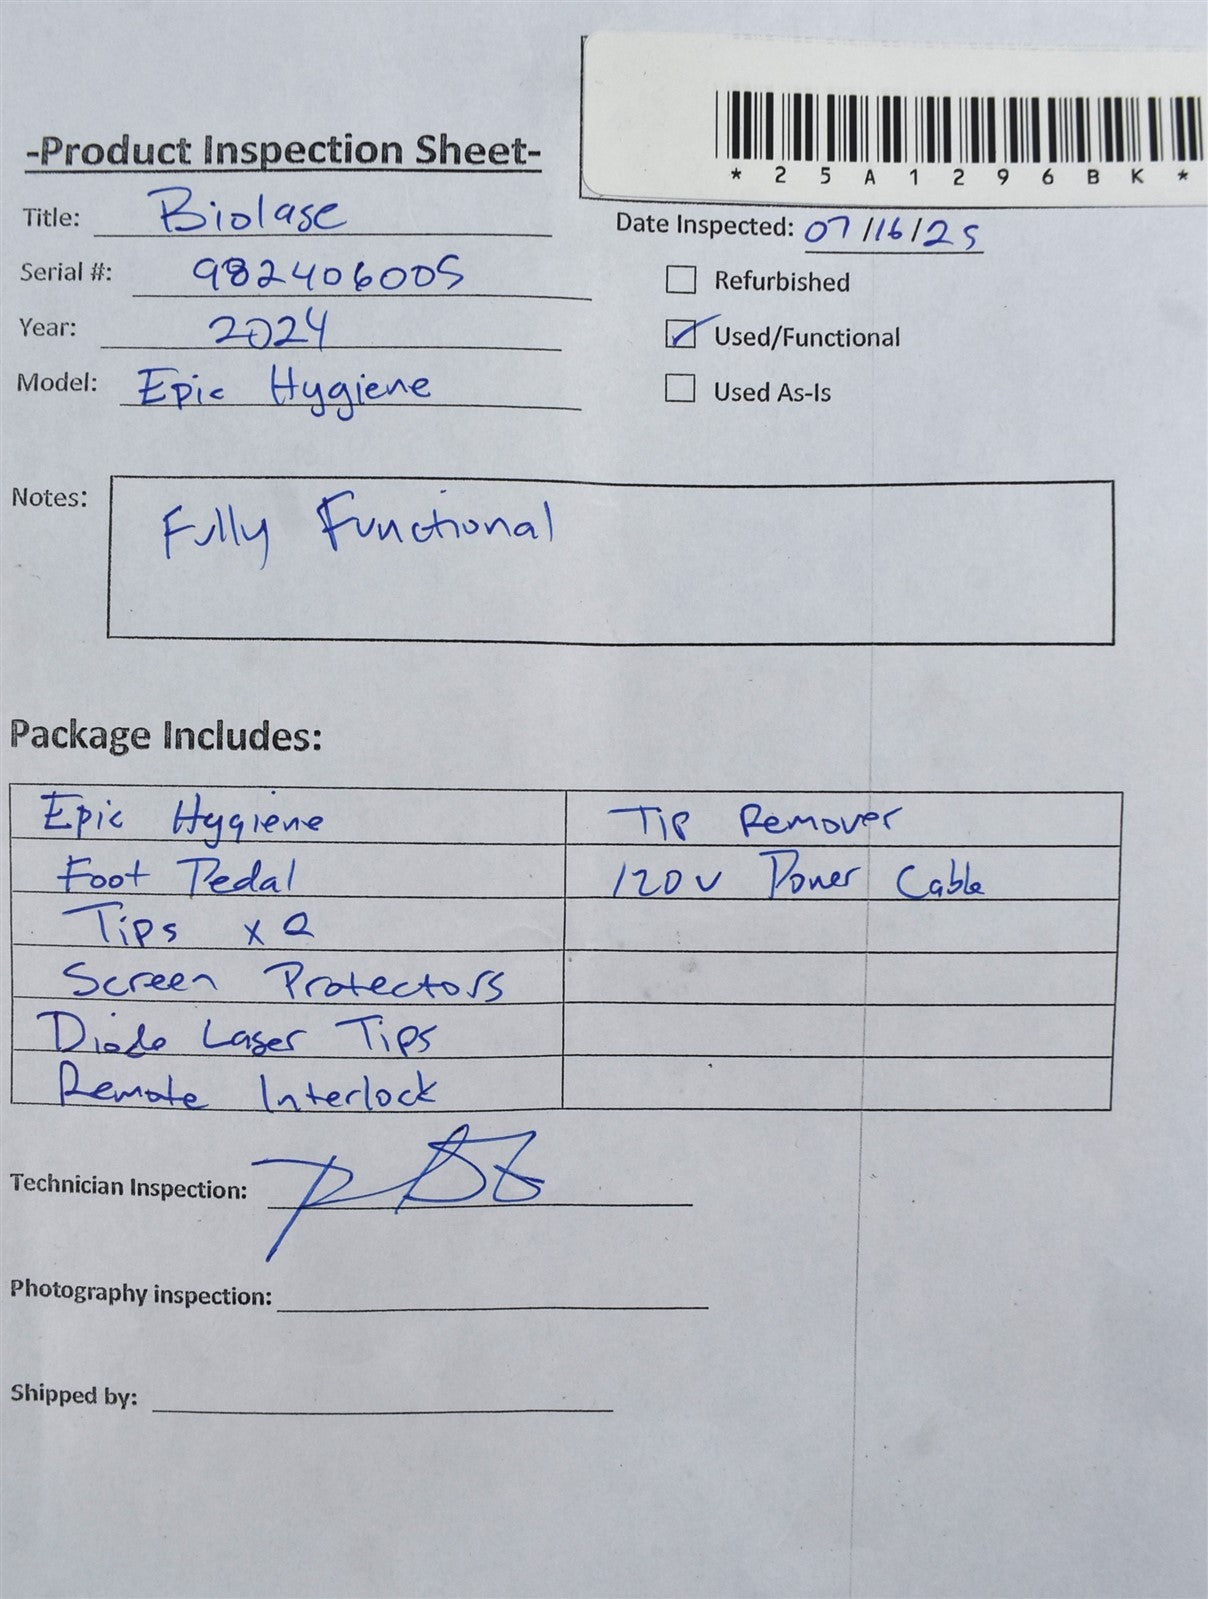 * 2 5 A 1 2 9 6 B K *
-Product Inspection Sheet-
Title: Biolase
Date Inspected: 07/16/25
Serial #: 982406005
Refurbished
Year: 2024
Used/Functional
Model: Epic Hygiene
Used As-Is
Notes: Fully Functional
Package Includes:
Epic Hygiene Tip Remover
Foot Pedal 120v Power Cable
Tips x 2
Screen Protectors
Diode Laser Tips
Remote Interlock
Technician Inspection:
Photography inspection:
Shipped by: